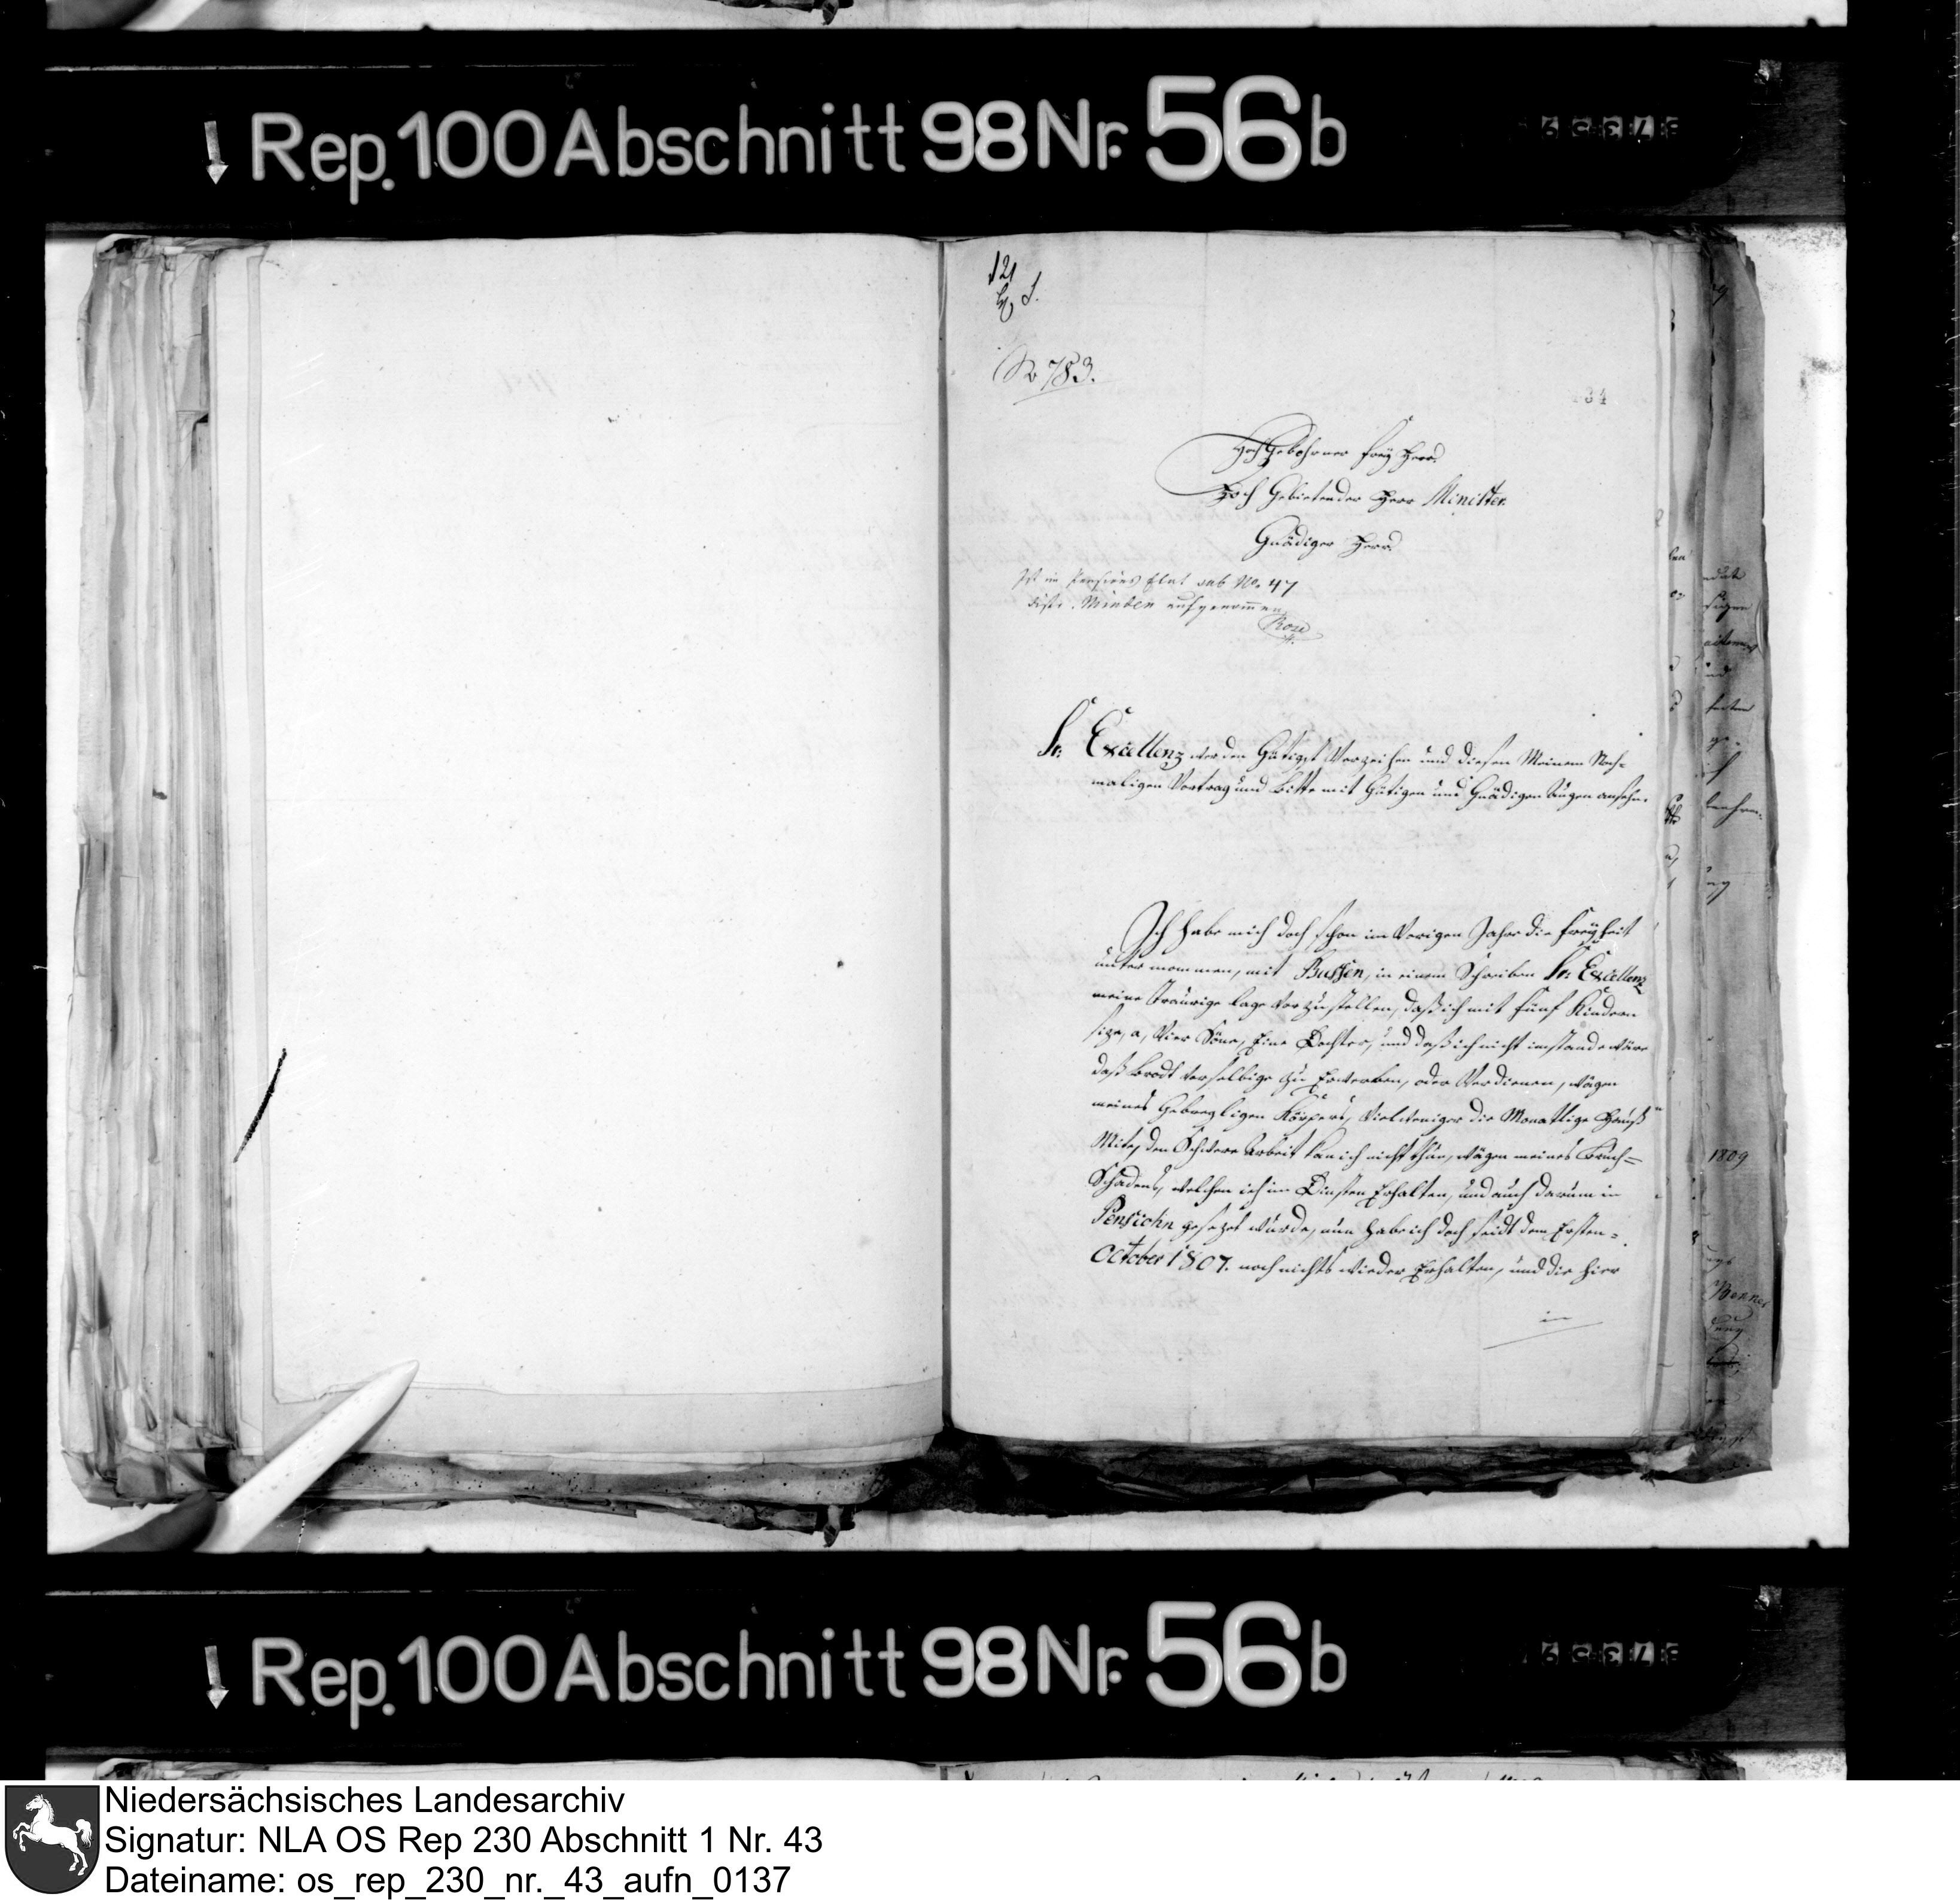 ↓ Rep. 100 Abschnitt 98 Nr. 56b
121
No 783.
134
HochGebohrner Frey Herr
Hoch Gebietender Herr Minister
Gnädiger Herr
Ist im Pensions Etat sub No. 47
distr. Minden aufgenommen
Sr: Excellenz werden Gütigst Verzeihen und diesen Meinem Noch=
maligen Vortrag und bitte mit Gütigen und Gnädigen Augen ansehn.
Ich habe mich doch schon im Vorigen Jahre die Freyheit
unternommen, mit Bussen, in einem Schreiben Sr: Excellenz
meine Traurige lage vorzustellen, daß ich mit fünf Kindern
size, a, Vier Söne, Eine Dochter, und daß ich nicht imstande wäre
daß brodt vorselbige zu Erwerben, oder Verdienen, wägen
meines Gebregligen Körpers, Vielweniger die Monatlige Hauß
Mite, den Schwere Arbeit kan ich nicht thun, wägen meines Bruch=
Schadens, welchen ich im Dinsten Erhalten, und auch darum in
Pensiohn gesezet wurde, nun habe ich doch seidt dem Ersten=
October 1807. noch nichts wieder Erhalten, und die hier
in
1809
↓ Rep. 100 Abschnitt 98 Nr. 56b
Niedersächsisches Landesarchiv
Signatur: NLA OS Rep 230 Abschnitt 1 Nr. 43
Dateiname: os_rep_230_nr._43_aufn_0137